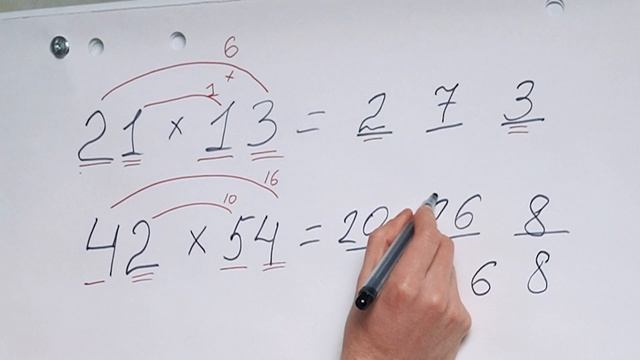 6
+
1
21 × 13 = 2 7 3
16
10
42 × 54 = 20 26 8
6 8